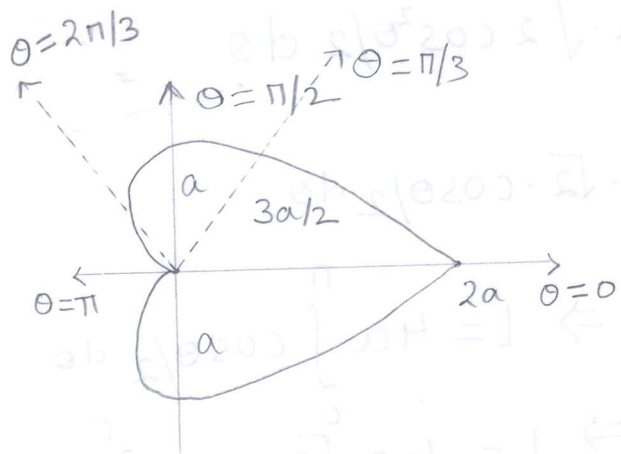 θ=2π/3
θ=π/2
θ=π/3
a
3a/2
θ=π
2a
θ=0
a